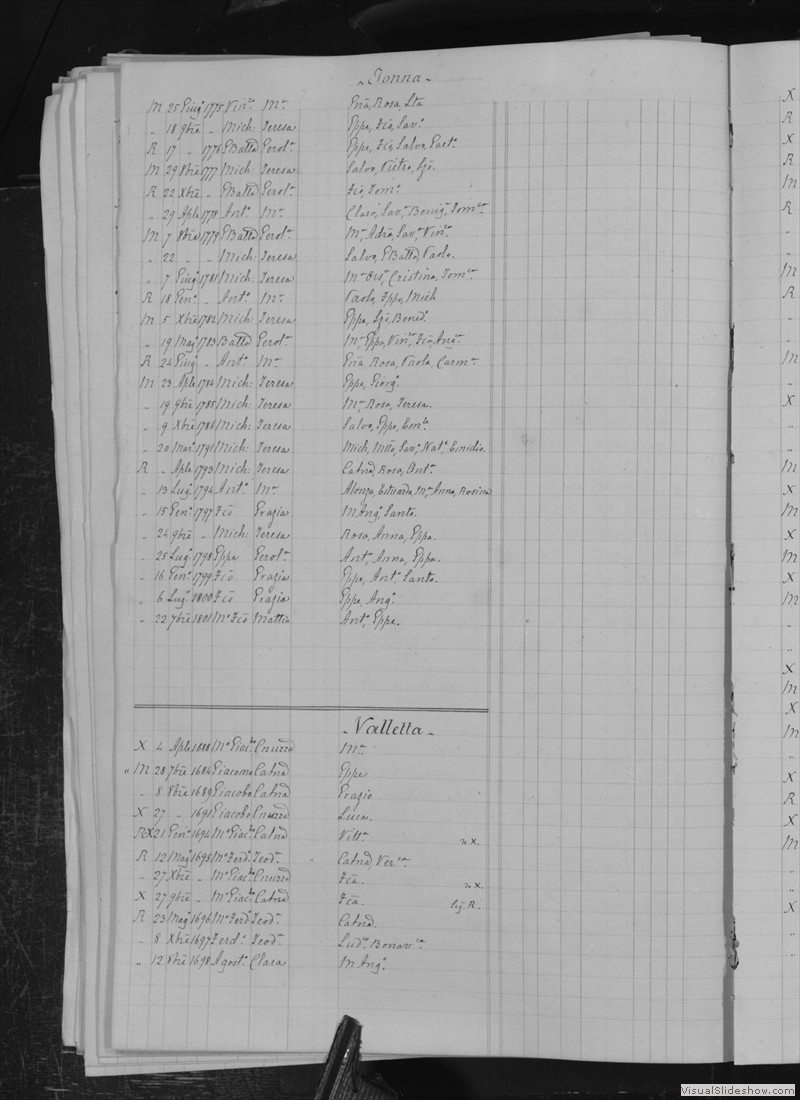 Tonna
M 25 Giug° 1775 Vin.zo M.a Gra, Rosa, Sta
„ 18 9bre „ Mich: Teresa Gppe, Fco, Sav.a
R 17 „ 1776 GBatta Gerol.a Gppe, Fco, Salva, Gaet.
M 29 8bre 1777 Mich: Teresa Salva, Pietro,
R 22 Xbre „ GBatta Gerol.a Fco, Tom.o
„ 29 Aple 1778 Ant.o M.a Clara, Sav.a Benig.a Tom.ca
M 7 8bre 1779 GBatta Gerol.a M.a Adra, Sav.a Vin.za
„ 22 „ „ Mich: Teresa Salva, GBatta, Paolo.
„ 7 Giug° 1781 Mich: Teresa M.a Ors.a Cristina, Tom.ca
R 18 Gen.o „ Ant.o M.a Paolo, Gppe, Mich
M 5 Xbre 1782 Mich: Teresa Gppa, Bened.a
„ 19 Mag° 1783 Batta Gerol.a M.a Gppa, Vin.za, Fca, Ang.a
R 24 Giug° „ Ant.o M.a Gra, Rosa, Paola, Carm.a
M 23 Aple 1784 Mich: Teresa Gppe, Giorg.o
„ 19 9bre 1785 Mich: Teresa M.a Rosa, Teresa.
„ 9 Xbre 1786 Mich: Teresa Salva, Gppe, Em.le
„ 20 Mar.o 1791 Mich: Teresa Mich, Sav.e Nat.e Emidio.
R „ Aple 1793 Mich: Teresa Catna, Rosa, Ant.a
„ 13 Lug° 1794 Ant.o M.a Alonza, Eduarda, M.a Anna, Rosina
„ 15 Gen.o 1797 Fco Grazia M Ang.a Santa.
„ 24 9bre „ Mich: Teresa Rosa, Anna, Gppa.
„ 25 Lug° 1798 Gppe Gerol.a Ant.a, Anna, Gppa.
„ 16 Gen.o 1799 Fco Grazia Gppe, Ant.o, Santo.
„ 6 Lug° 1800 Fco Grazia Gppe, Ang.o
„ 22 7bre 1801 M.o Fco Mattia Ant.o, Gppe.
Valletta
X 4 Aple M.o Giac.bo Cnuzza M.a
„ M 28 7bre 1684 Giacomo Catna Gppe
„ 8 8bre 1689 Giacobo Catna Grazio
X 27 „ 1691 Giacobo Cnuzza Luca.
RX 21 Gen.o 1694 M.o Giac.bo Catna Vitt.a 2a X.
R 12 Mag° 1695 M.o Ferd.o Teod.a Catna, Ver.ca
„ 27 Xbre „ M.o Giac.bo Cnuzza Fca. 2a X.
X 27 9bre „ M.o Giac.bo Catna Fca. Seg. R.
R 23 Mag° 1696 M.o Ferd. Teod.a Catna.
„ 8 Xbre 1697 Ferd.o Teod.a Lud.o Bonav.ra
„ 12 8bre 1698 Agost.o Clara M Ang.o
VisualSlideshow.com